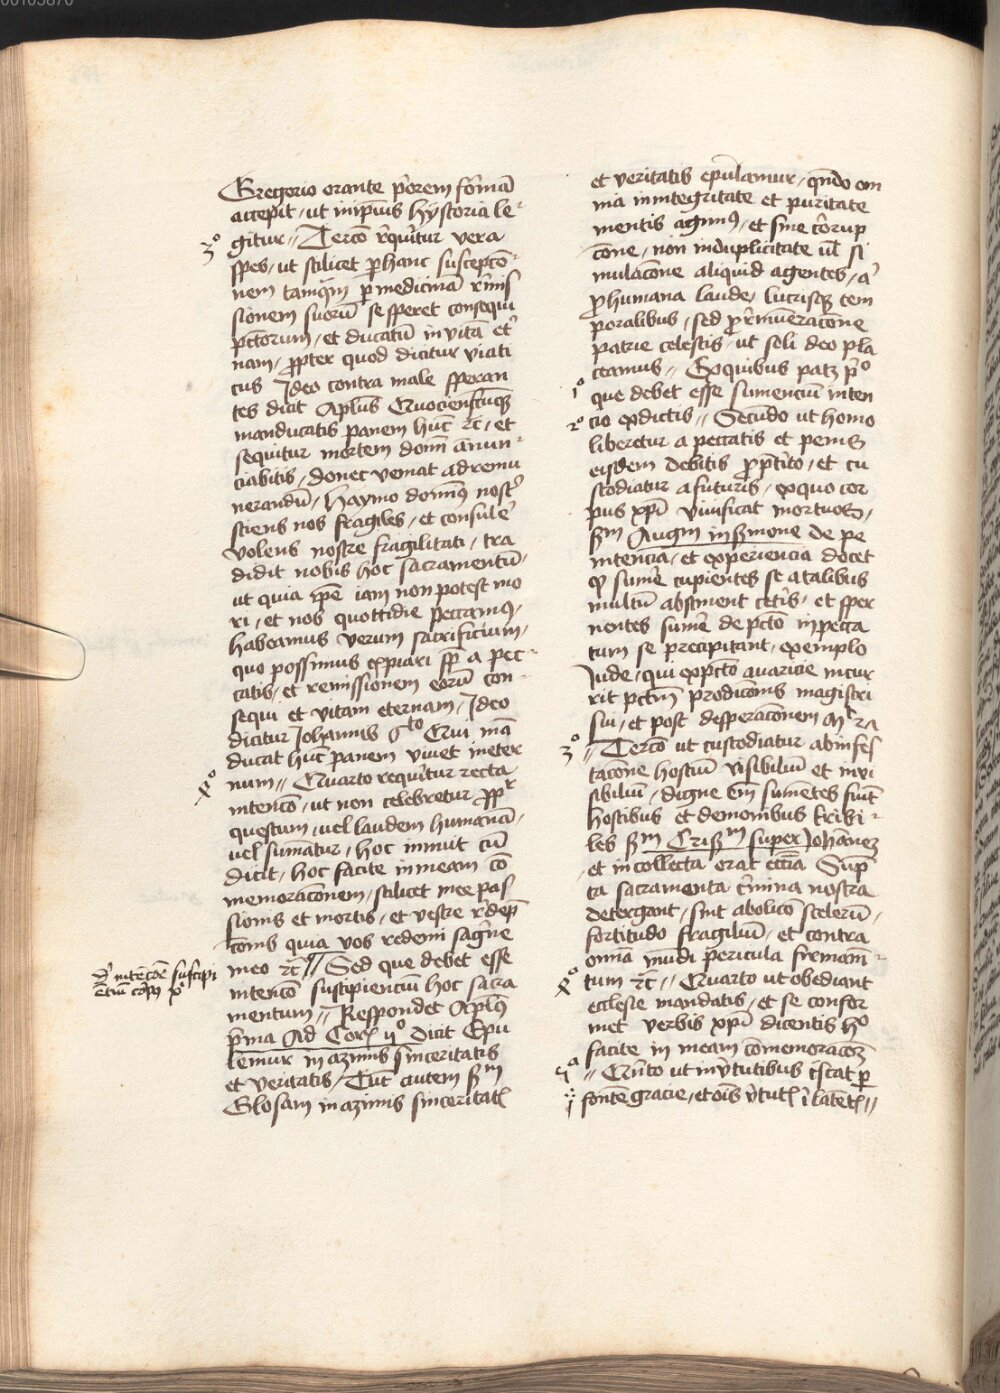 00105870
Gregorio orante p̄orem formā
accepit, ut in ip̄ius hÿstoria le-
3º gitur // Tercō req̇ritur vera
spes, ut scilicet p hanc suscepcō-
nem tamq̄m p medicinā rem̄is
sionem suorū se speret consequi
pctōrum, et ducatū in vitā et̓
nam, ppter quod dicitur viati
cus Ideo contra male speran
tes dicit Apl̄us Quociensc̄ūqꝫ
manducatis panem hūc ⁊c̄, et
sequitur mortem domī annun-
ciabitis, donec veniat ad remu
nerandū, Haymo domīꝰ nost̓
sciens nos fragiles, et consule̓
volens nostre fragilitati, tra
didit nobis hoc sacramentū,
ut quia ip̄e iam non potest mo
ri, et nos quottidie peccamꝰ,
habeamus verum sacrificium,
quo possimus expiari sp̄ a pec-
catis, et remissionem eorū con-
sequi et vitam eternam, Ideo
dicitur Johannis 6ᵗᵒ Qui mā
ducat hūc panem vivet in eter
4º num // Quarto requiritur recta
intencō, ut non celebretur ppᵗ
questum, vel laudem humanā,
vel sumatur, hoc innuit cū
dicit, hoc facite in meam cō
memoracōnem, scilicet mee pas
sionis et mortis, et vestre redēp
cōnis quia vos redemi sagīne
meo ⁊c̄ // Sed que debet esse
intencō suscipienciū hoc sacra
mentum // Respondet Aplꝰs
p̄ma Ad Cor̄ ijº dicit Epu
lemur in azimis sinceritatis
et veritatis, Tūc autem scᵐ
Glosam in azimis sinceritatꝭ
de intēcōe suscipi
enciū corpꝰ xⁱ
et veritatis epulamur, qn̄do om
nia in integritate et puritate
mentis agimꝰ, et sine corrup
cōne, non in duplicitate vl̄ si
mulacōne aliquid agentes, a̓
p humana laude, lucrisqꝫ tem
poralibus, sed p remuneracōne
patrie celestis, ut soli deo pla
ceamus // Ex quibus patꝫ pº
1º que debet esse sumenciū inten
2º cio ex dictis // Secundo ut homo
liberetur a peccatis et penis
eisdem debitis pp̄tito, et cu
stodiatur a futuris, ex quo cor
pus xp̄i vivificat mortuos,
scᵐ Augᵐ in sermone de pe
nitencia, et experiencia docet
qꝫ sum̄e cupientes se a talibus
multū abstinent cet̓is, et sper
nentes sum̄e de pctō in pecca
tum se precipitant, exemplo
Jude, qui ex pctō avaricie incur
rit pctm̄ prodicōnis magistri
sui, et post desperacōnem Mᵗ 27
3º // Tercō ut custodiatur ab infes
tacōne hostiū visibiliū et invi
sibiliū, digne em̄ sumētes fiūt
hostibus et demonibus teribi-
les scᵐ Crisᵐ super Johānem
, et in collecta orat ecc̄ia Sup̄
ta sacramenta c̄rimina nostra
detergant, sint abolicō scelerū,
fortitudo fragiliū, et contra
omīa mūdi pericula firmam̄-
4º tum ⁊c̄ // Quarto ut obediant
ecclesie mandatis, et se confor
met verbis xp̄i dicentis hº
facite in meam cōmemoracōꝫ
5ª // Qui̇to ut in v̓tutibus c̄scat p
fontē gracie, et oīs v̓tutꝭ ī latētꝭ //